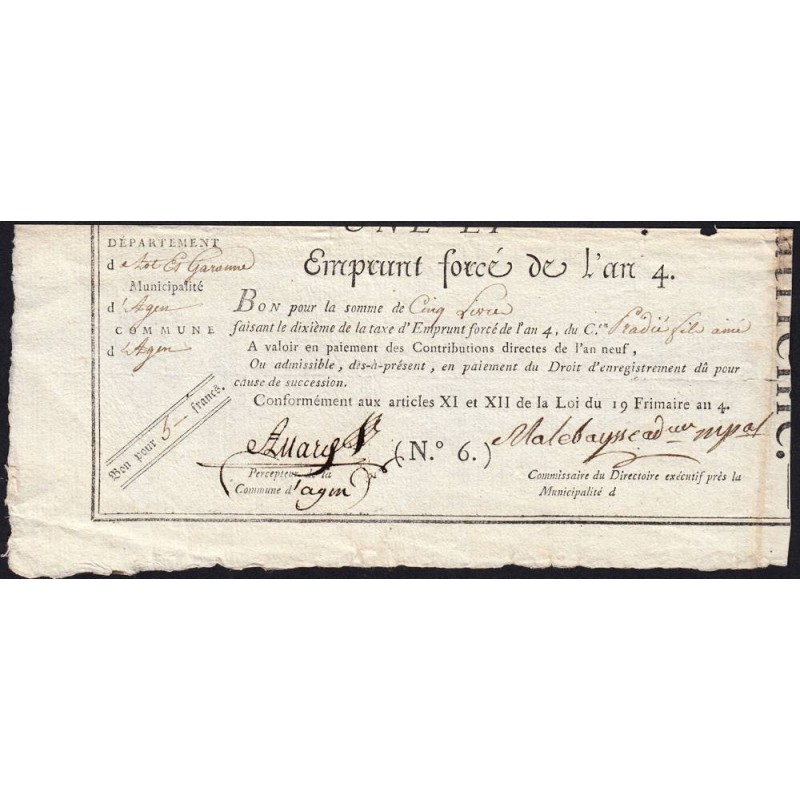 DÉPARTEMENT
de Lot Et Garonne
Municipalité
d'Agen
COMMUNE
d'Agen
Bon pour 5 — francs.
Emprunt forcé de l'an 4.
BON pour la somme de Cinq Livre
faisant le dixième de la taxe d'Emprunt forcé de l'an 4, du C.en Pradié fils ainé
A valoir en paiement des Contributions directes de l'an neuf,
Ou admissible, dès-à-présent, en paiement du Droit d'enregistrement dû pour
cause de succession.
Conformément aux articles XI et XII de la Loi du 19 Frimaire an 4.
(N.º 6.)
Percepteur de la
Commune d'agen
Commissaire du Directoire exécutif près la
Municipalité d